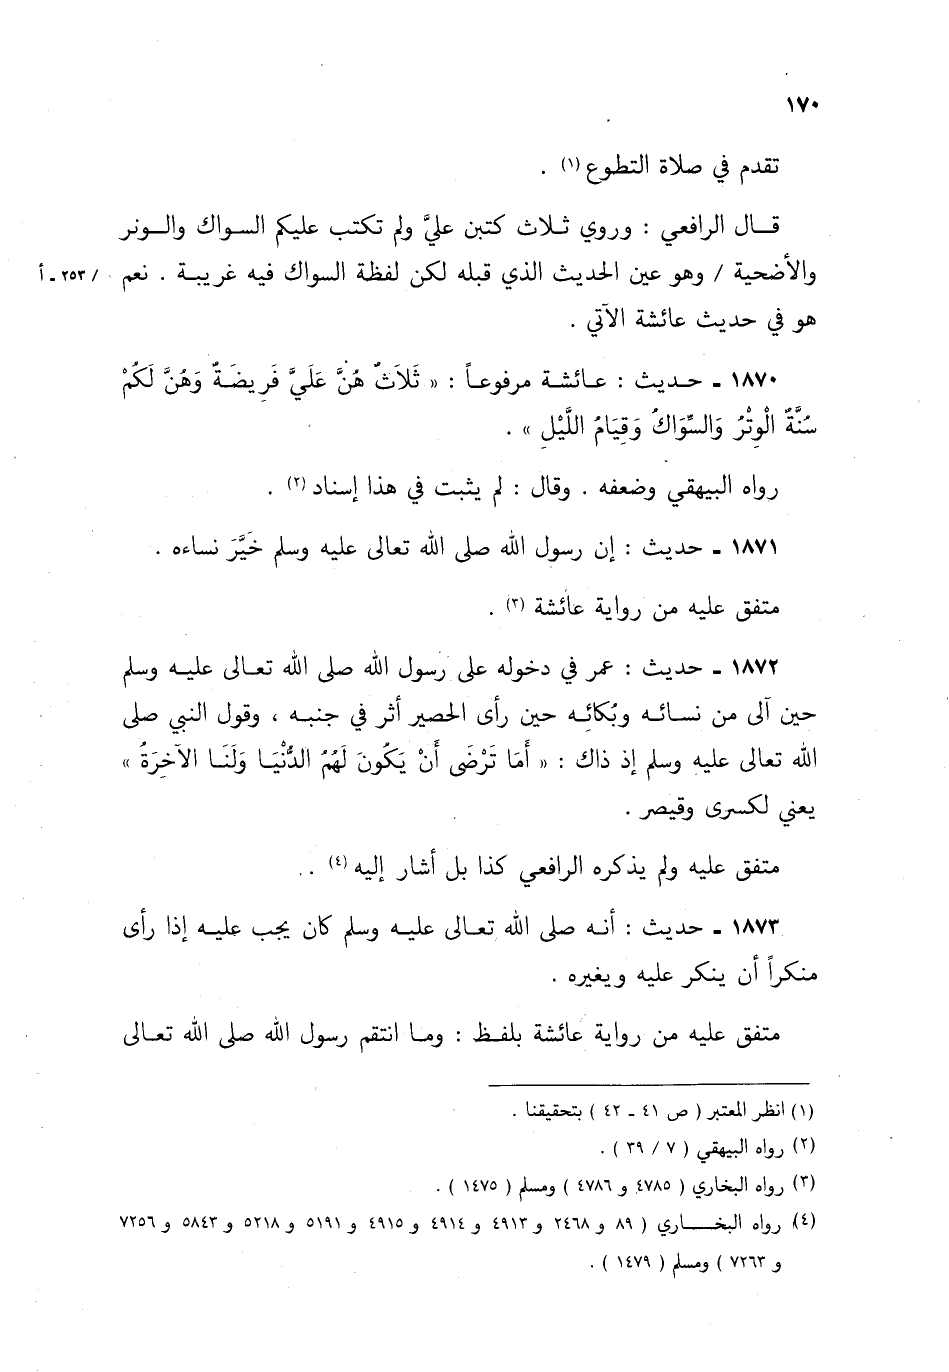 ١٧٠
تقدم في صلاة التطوع (١) .
قـــال الرافعي : وروي ثـلاث كتبن عليَّ ولم تكتب عليكم السـواك والـونر
والأضحية / وهو عين الحديث الذي قبله لكن لفظة السواك فيه غريبـة . نعم / ٢٥٣ ـ أ
هو في حديث عائشة الآتي .
١٨٧٠ ـ حـديث : عـائشـة مرفوعـاً : « ثَلاَثٌ هُنَّ عَلَيَّ فَرِيضَةٌ وَهُنَّ لَكُمْ
سُنَّةٌ الْوِتْرُ وَالسِّوَاكُ وَقِيَامُ اللَّيْلِ » .
رواه البيهقي وضعفه . وقال : لم يثبت في هذا إسناد (٢) .
١٨٧١ ـ حديث : إن رسول الله صلى الله تعالى عليه وسلم خَيَّرَ نساءه .
متفق عليه من رواية عائشة (٣) .
١٨٧٢ ـ حديث : عمر في دخوله على رسول الله صلى الله تعـالى عليـه وسلم
حين آلى من نسائـه وبُكائـه حين رأى الحصير أثر في جنبـه ، وقول النبي صلى
الله تعالى عليه وسلم إذ ذاك : « أَمَا تَرْضَى أَنْ يَكُونَ لَهُمُ الدُّنْيَـا وَلَنَـا الآخِرَةُ »
يعني لكسرى وقيصر .
متفق عليه ولم يذكره الرافعي كذا بل أشار إليه (٤) .
١٨٧٣ ـ حديث : أنـه صلى الله تعـالى عليـه وسلم كان يجب عليـه إذا رأى
منكراً أن ينكر عليه ويغيره .
متفق عليه من روايـة عائشة بلفـظ : ومـا انتقم رسول الله صلى الله تعـالى
(١) انظر المعتبر ( ص ٤١ ـ ٤٢ ) بتحقيقنا .
(٢) رواه البيهقي ( ٧ / ٣٩ ) .
(٣) رواه البخاري ( ٤٧٨٥ و ٤٧٨٦ ) ومسلم ( ١٤٧٥ ) .
(٤) رواه البخـــاري ( ٨٩ و ٢٤٦٨ و ٤٩١٣ و ٤٩١٤ و ٤٩١٥ و ٥١٩١ و ٥٢١٨ و ٥٨٤٣ و ٧٢٥٦
و ٧٢٦٣ ) ومسلم ( ١٤٧٩ ) .